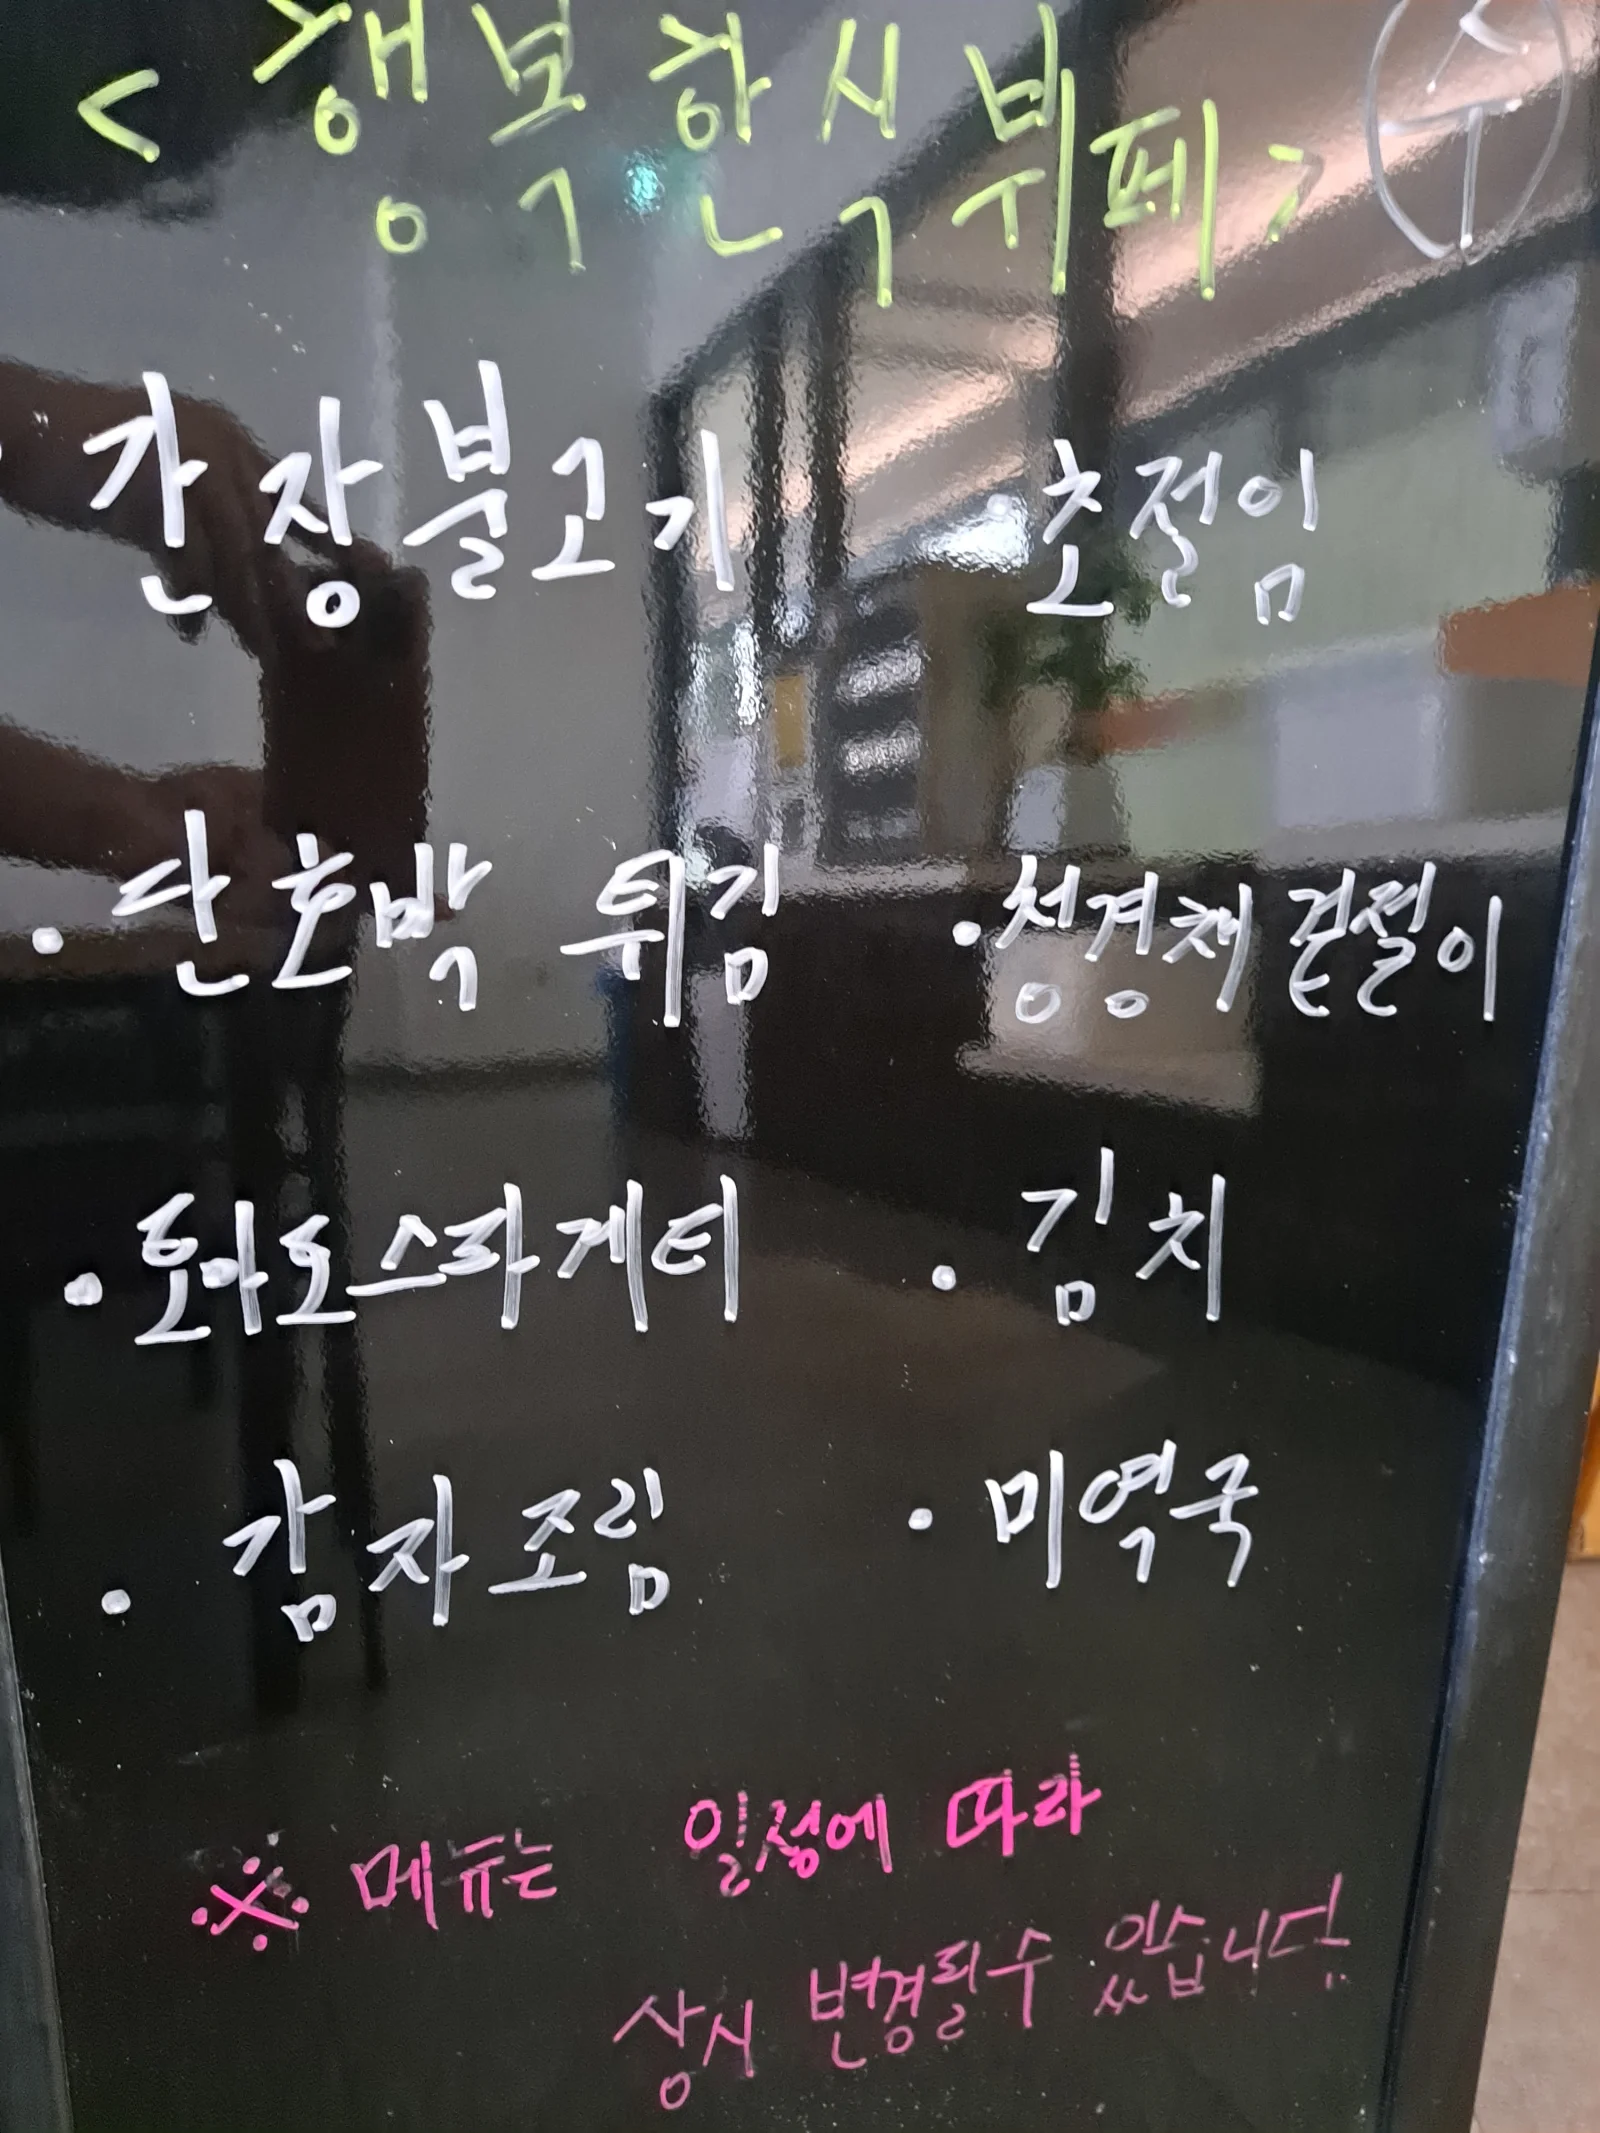 <행복한식뷔페> 수
간장불고기 · 초절임
· 단호박 튀김 · 청경채 겉절이
· 토마토스파게티 · 김치
· 감자조림 · 미역국
※ 메뉴는 일정에 따라
상시 변경될수 있습니다.